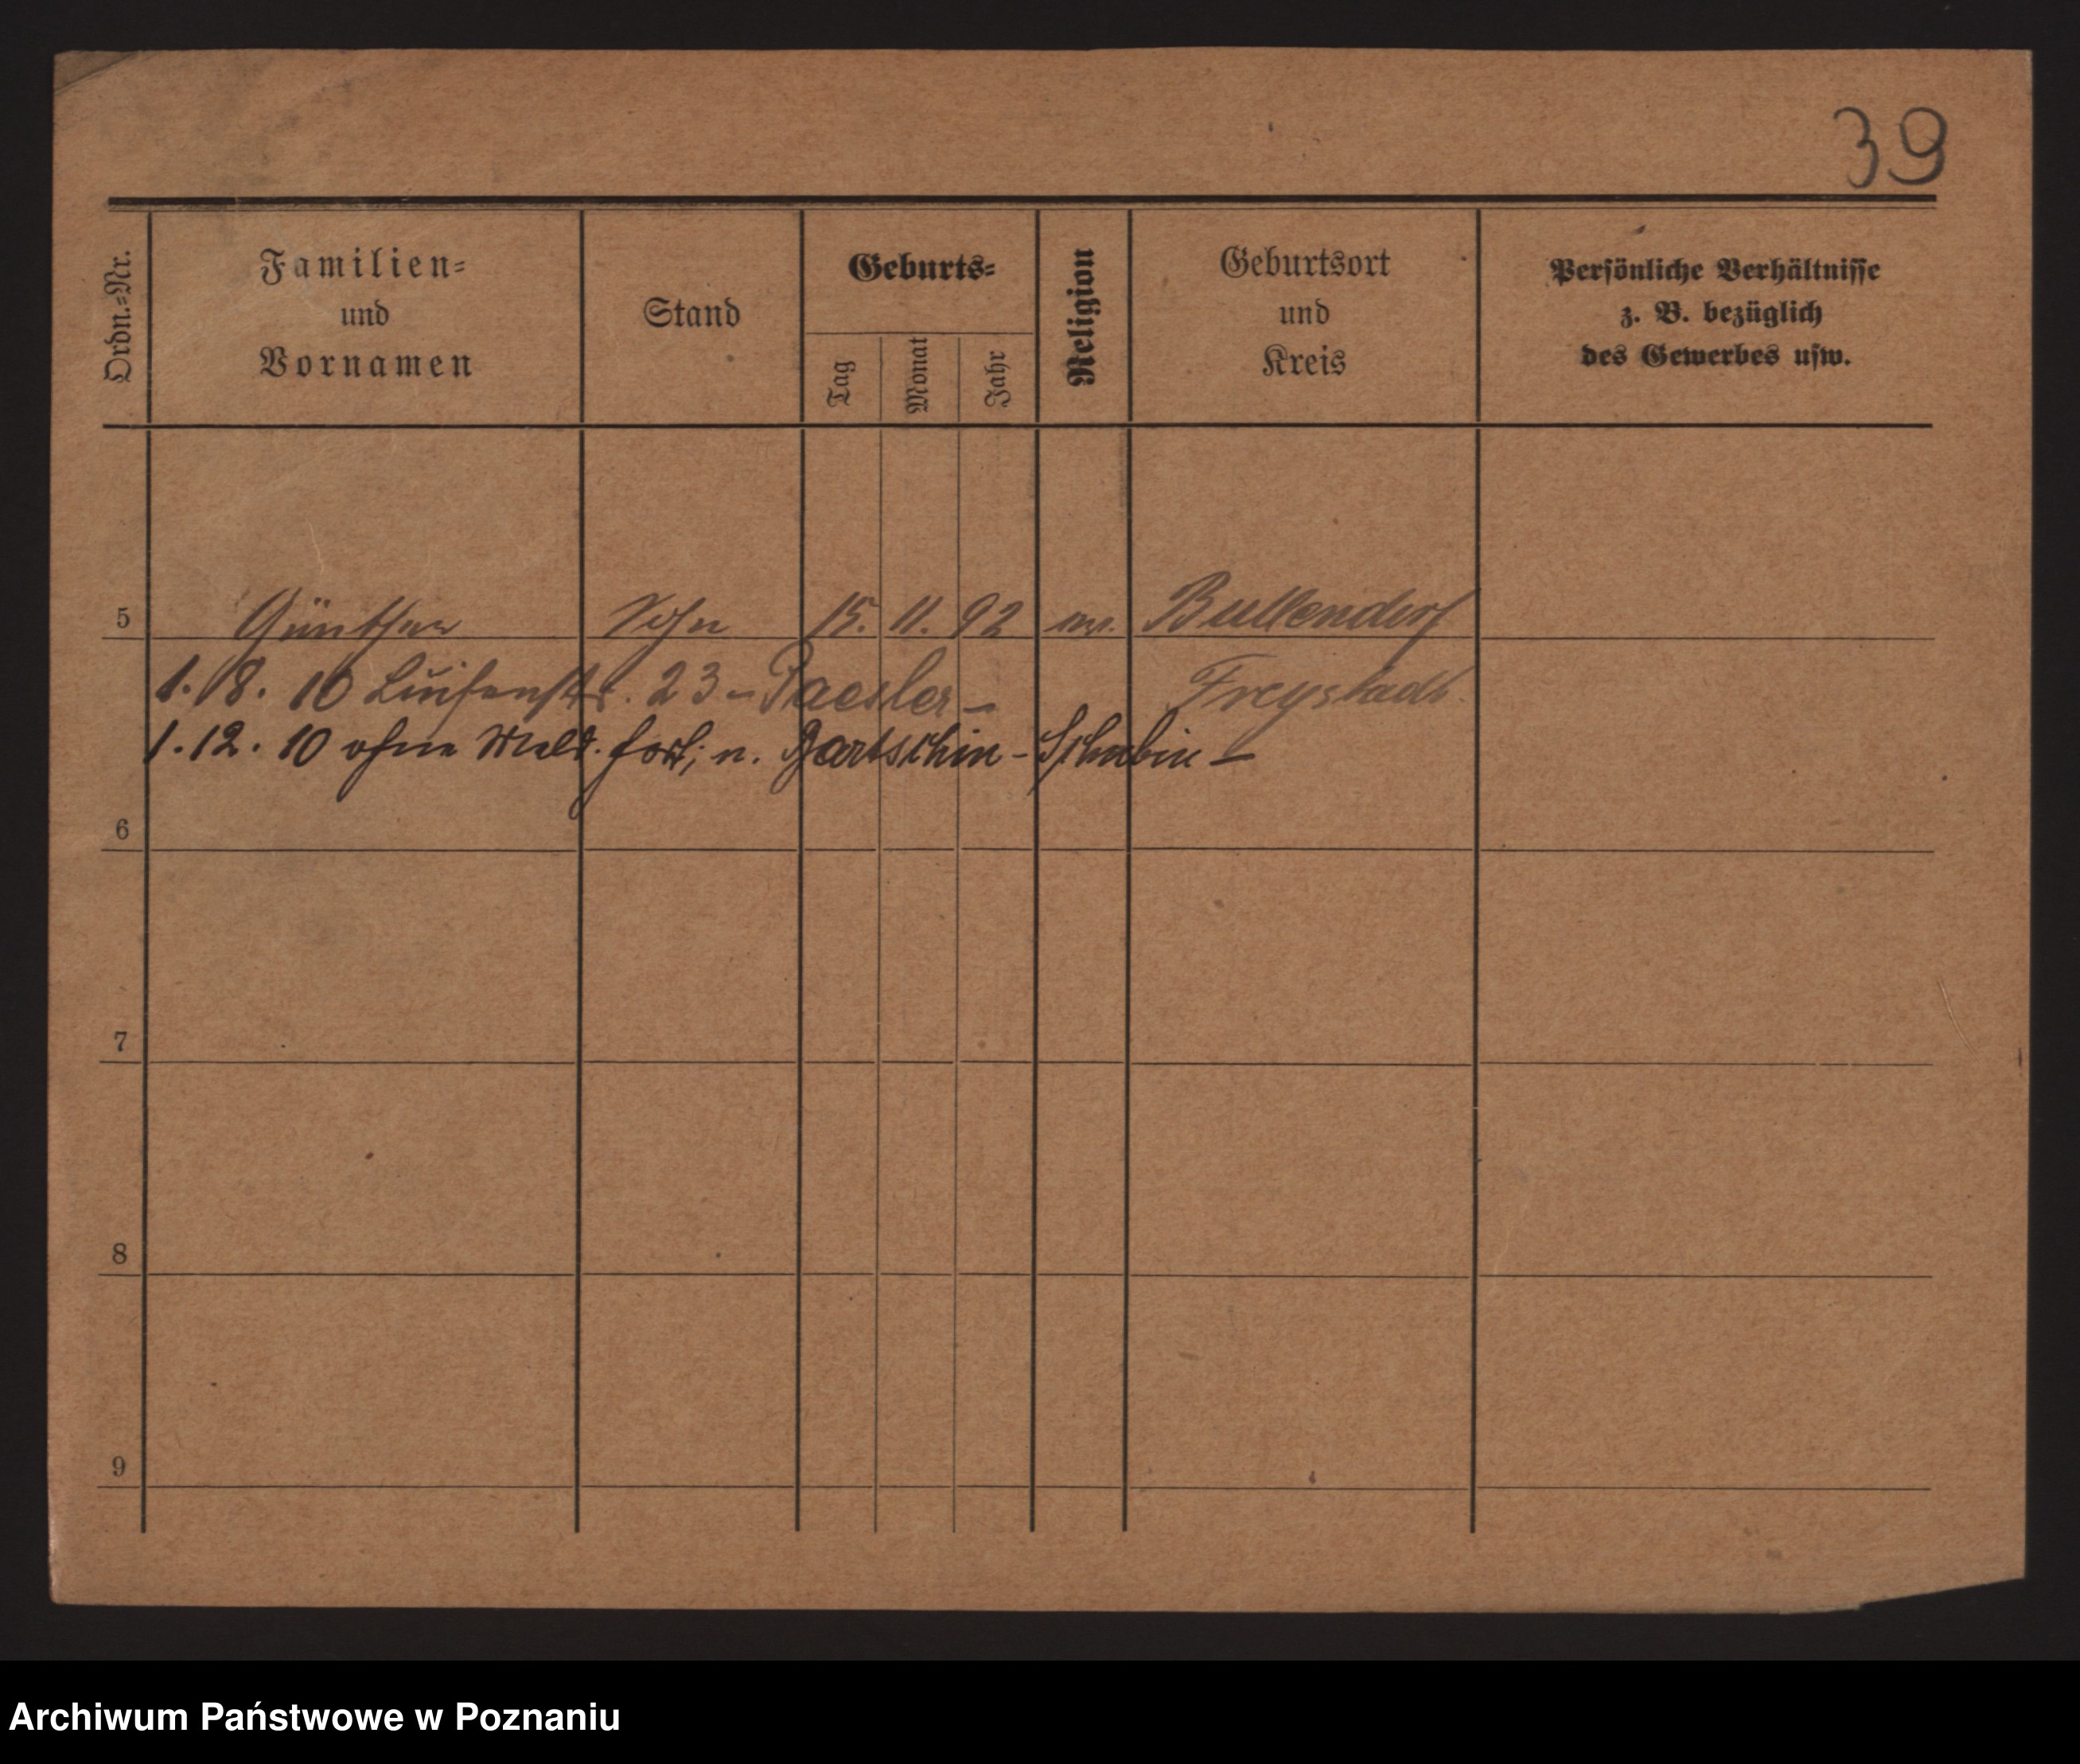 39
Ordn.=Nr.
Familien=
und
Vornamen
Stand
Geburts=
Tag
Monat
Jahr
Religion
Geburtsort
und
Kreis
Persönliche Verhältnisse
z. B. bezüglich
des Gewerbes usw.
5 Günther Sohn 15. 11. 92 ev. Bullendorf
Freystadt.
1. 8. 10 Luisenstr. 23 - Paesler -
1. 12. 10 ohne Meld. fort; n. Bartschin - Schubin -
6
7
8
9
Archiwum Państwowe w Poznaniu